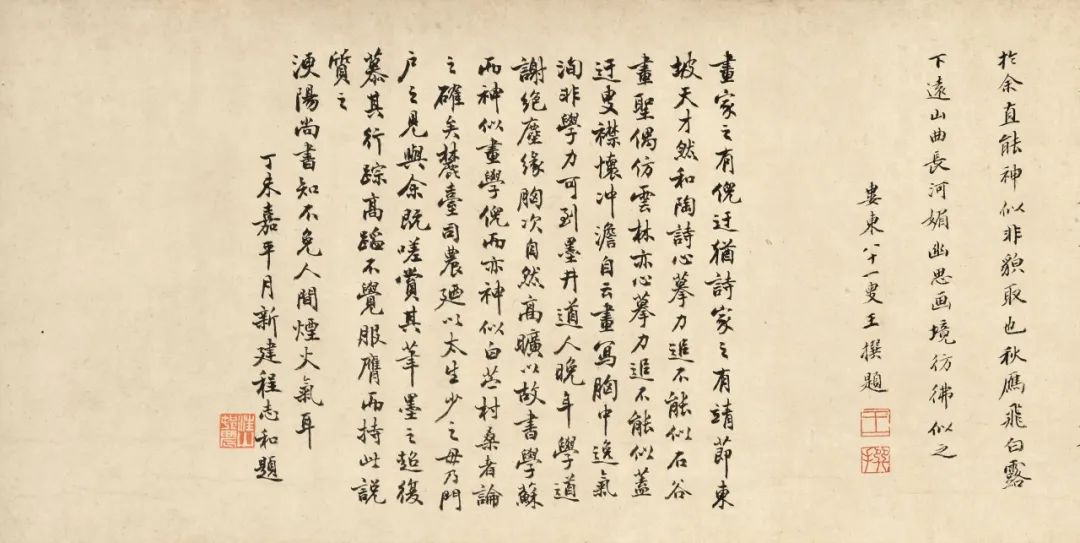 於余直能神似非貌取也秋鴈飛白露
下遠山曲長河媚幽思画境彷彿似之
婁東八十一叟王撰題
王
撰
畫家之有倪迂猶詩家之有靖節東
坡天才然和陶詩心摹力追不能似石谷
畫聖偶仿雲林亦心摹力追不能似蓋
迂叟襟懷沖澹自云畫寫胸中逸氣
洵非學力可到墨井道人晚年學道
謝絕塵緣胸次自然高曠以故書學蘇
而神似畫學倪而亦神似白苎村桑者論
之確矣麓臺司農廼以太生少之毋乃門
户之見與余既嗟賞其筆墨之超復
慕其行蹤高蹈不覺服膺而持此説
質之
浭陽尚書知不免人間煙火氣耳
丁未嘉平月新建程志和題